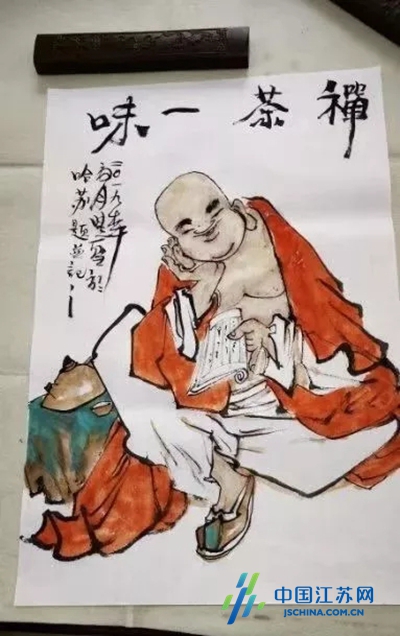 禪茶一味
二〇一九年
月
於
哈苏题並記
中国江苏网
JSCHINA.COM.CN